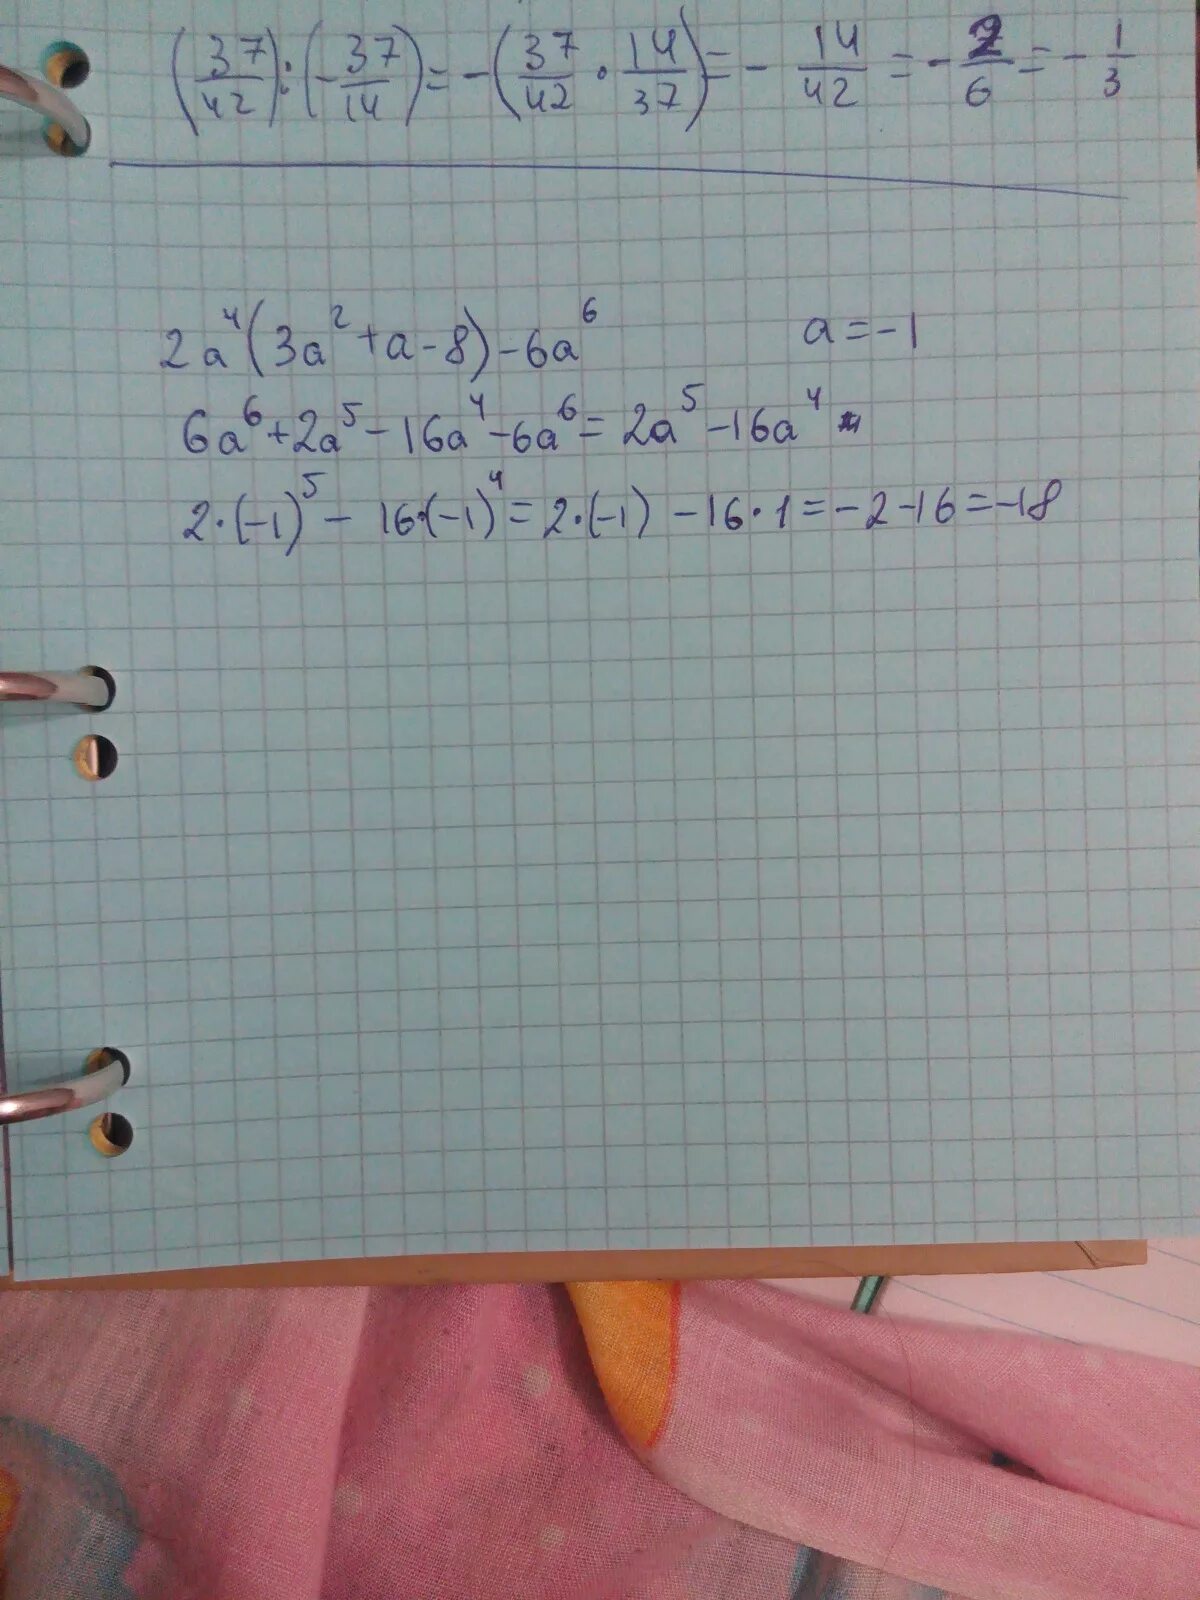 (37/42):(-37/14)=-(37/42·14/37)=-14/42=-2/6=-1/3
2a⁴(3a²+a-8)-6a⁶ a=-1
6a⁶+2a⁵-16a⁴-6a⁶=2a⁵-16a⁴
2·(-1)⁵-16·(-1)⁴=2·(-1)-16·1=-2-16=-18